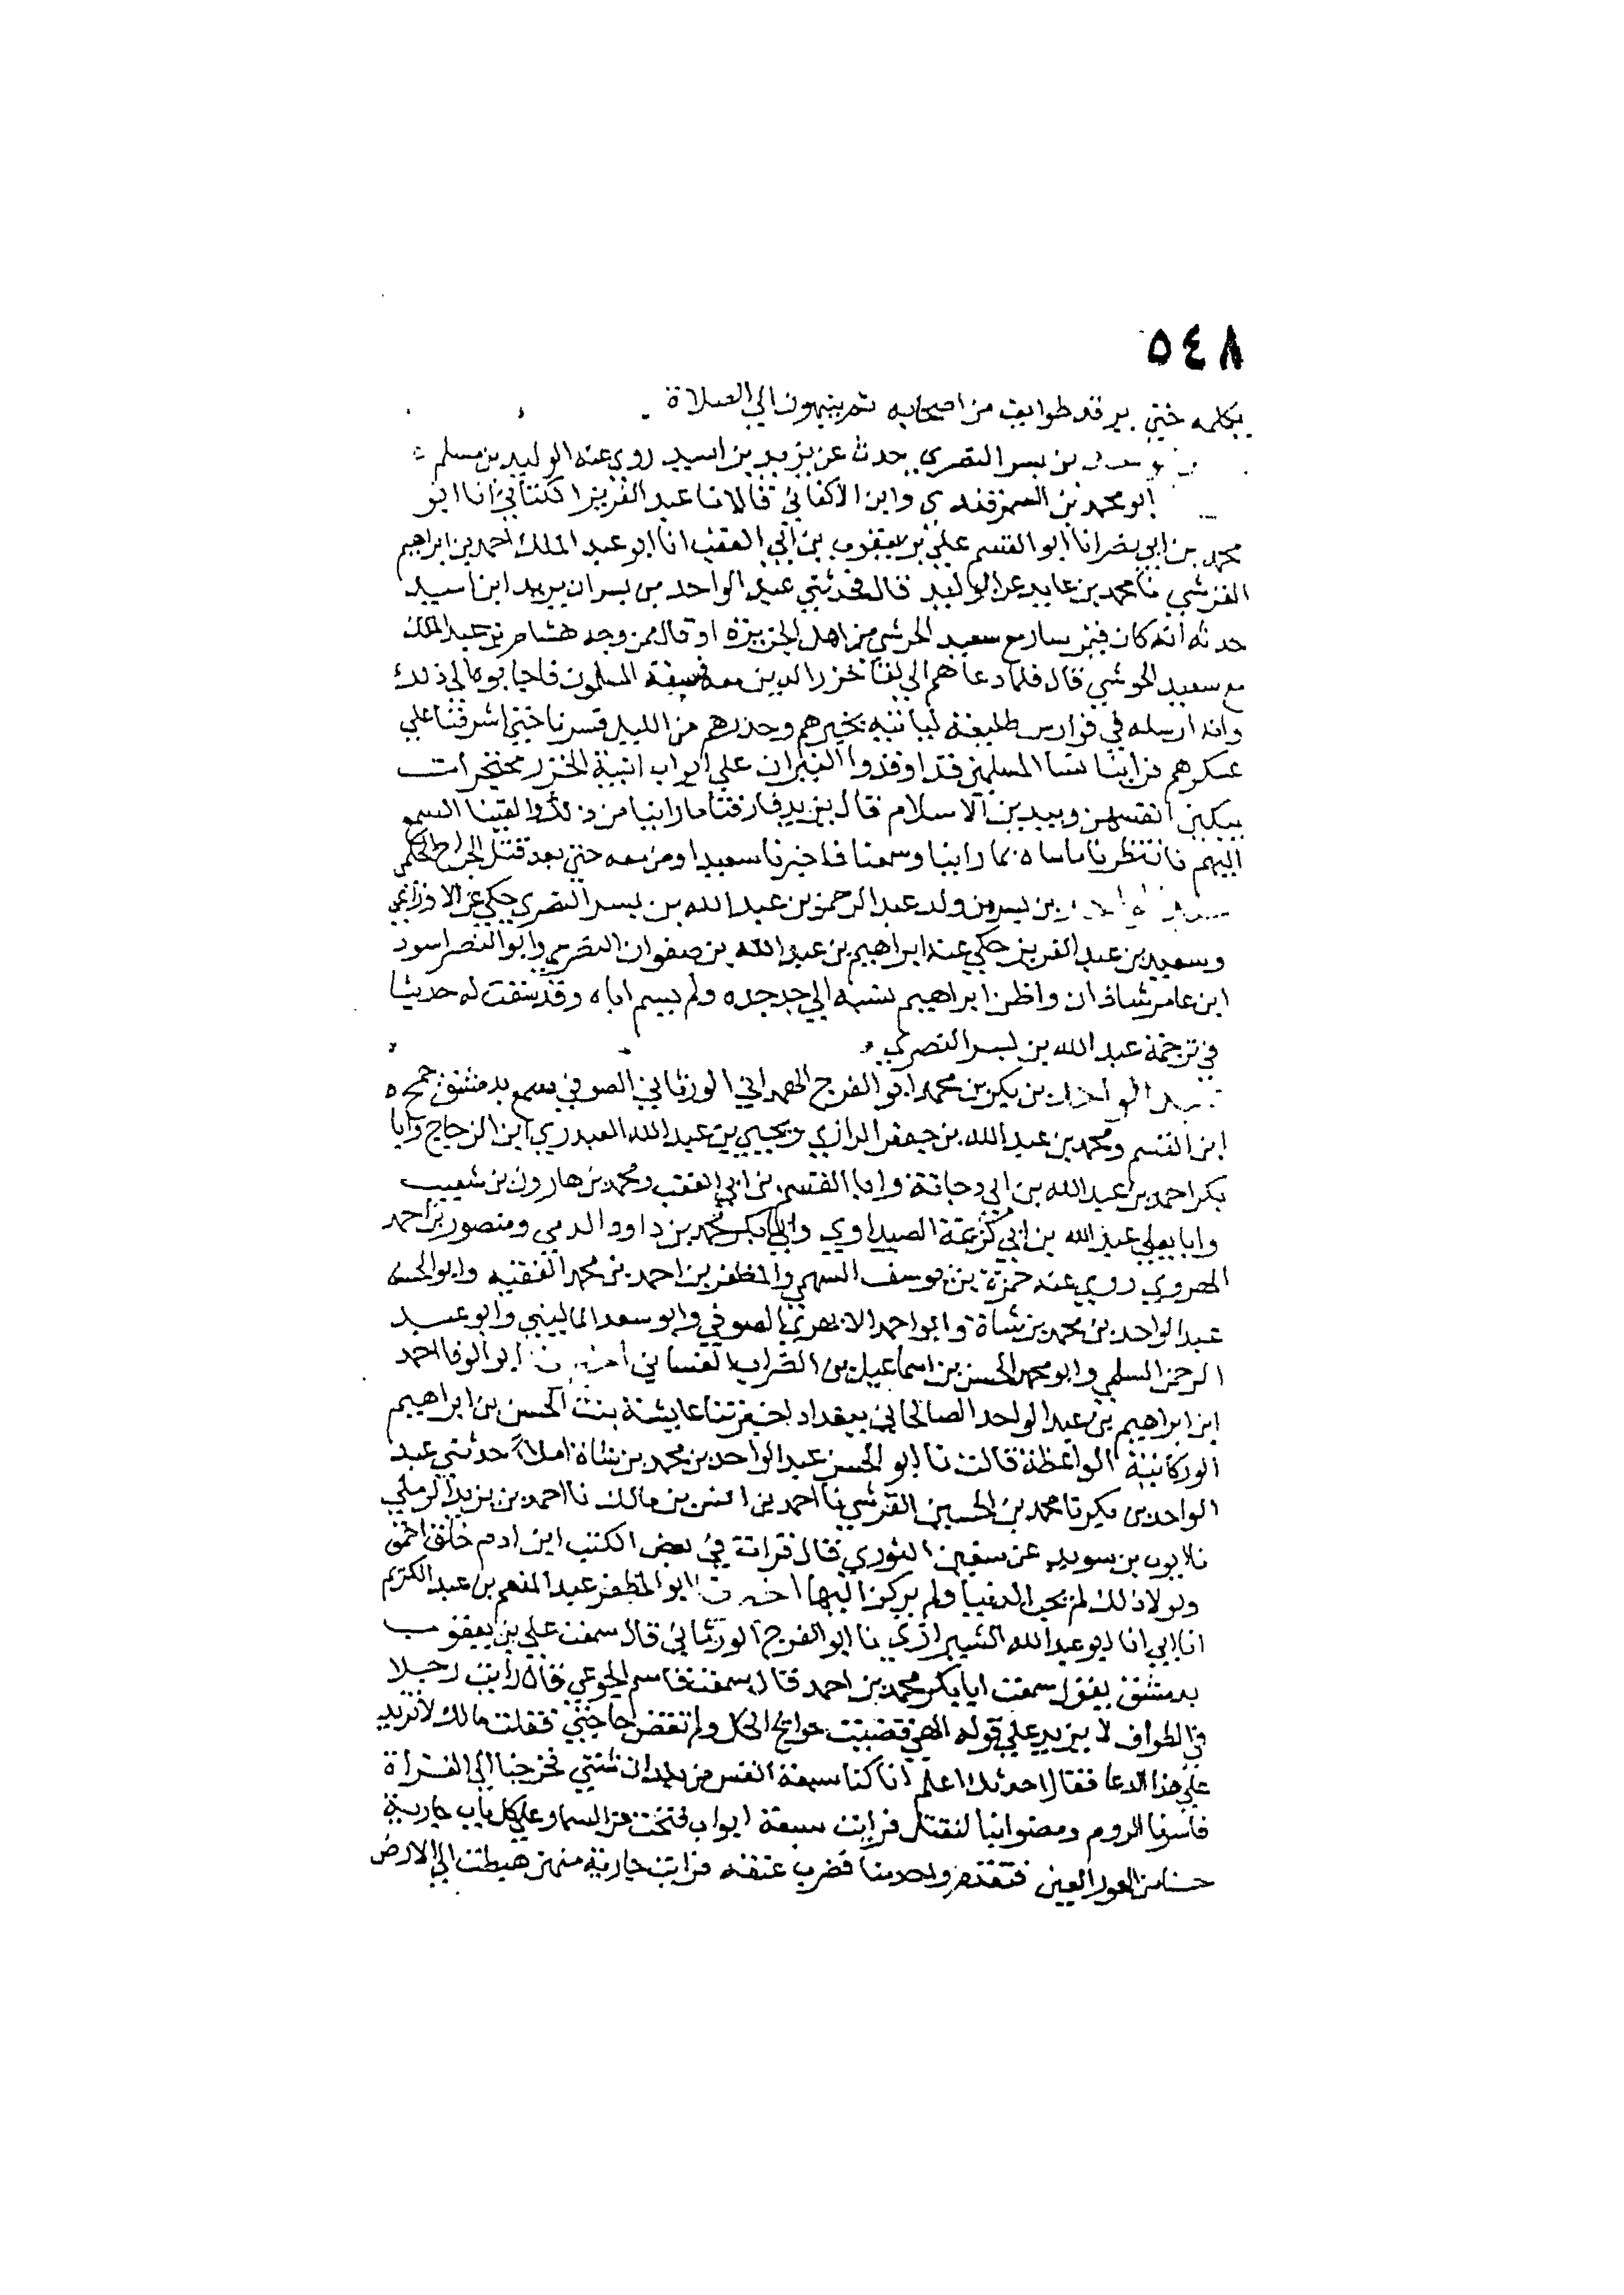 ٥٤٨
يكلمه حتى يرقد طوايف من اصحابه ثم ينبهون الي الصلاة
بن بسر النصري حدث عن يزيد بن اسيد روى عنه الوليد بن مسلم
ابو محمد بن السمرقندي وابن الاكفاني قالا نا عبد العزيز الكتاني انا ابو
محمد بن ابي نصر انا ابو القسم علي بن يعقوب بن ابي العقب انا ابو عبد الملك احمد بن ابراهيم
القرشي نا محمد بن عايد عن الوليد قال فحدثني عبد الواحد بن بسر ان يزيد ابن اسيد
حدثه انه كان فيمن سار مع سعيد الحرشي من اهل الجزيرة او قال ممن وجه هشام بن عبد الملك
مع سعيد الحرشي قال فلما دعاهم الي لقا خزر الدين معه المسلمون فاجابوه الي ذلك
وانه ارسله في فوارس طليعة لياتيه بخبرهم وحذرهم من الليل فسرنا حتي اشرفنا علي
عسكرهم فراينا نسا المسلمين قد اوقدوا النيران علي ابواب ابنية الخزر
يبكين انفسهن ويبدين الاسلام قال يزيد فارقنا ما راينا من ذلك والقينا السمع
اليهم فانتظرنا ماساه بما راينا وسمعنا فاخبرنا سعيدا ومن معه حتي بعد قتل الجراح الحكمي
بن بسر من ولد عبد الرحمن بن عبد الله بن بسر النصري حكي عن الاوزاعي
وسعيد بن عبد العزيز حكي عنه ابراهيم بن عبد الله بن صفوان النصري وابو النصر اسود
ابن عامر شاذان واظن ابراهيم نسبه الي جد جده ولم يسم اباه وقد سقت له حديثا
في ترجمة عبد الله بن بسر النصري
الواحد بن بكر بن محمد ابو الفرج الهمداني الورثاني الصوفي سمع بدمشق جمح
ابن القسم ومحمد بن عبد الله بن جعفر الرازي ويحيي بن عبد الله العبدري ابن الزجاج وابا
بكر احمد بن عبد الله بن ابي دجانة وابا القسم بن ابي العقب ومحمد بن هارون بن شعيب
وابا يعلي عبد الله بن ابي كريمة الصيداوي وابا بكر محمد بن داود الدمى ومنصور بن احمد
الهروي روي عنه حمزة بن يوسف السهمي والمظفر بن احمد بن محمد الفقيه وابو الحسن
عبد الواحد بن محمد بن شاة وابو احمد الابهري الصوفي وابو سعد الماليني وابو عبد
الرحمن السلمي وابو محمد الحسن بن اسماعيل بن الضراب الغساني ابو الوفا احمد
ابن ابراهيم بن عبد الواحد الصالحاني ببغداد اخبرتنا عايشة بنت الحسن بن ابراهيم
الوركانية الواعظة قالت نا ابو الحسن عبد الواحد بن محمد بن شاة املا حدثني عبد
الواحد بن بكر نا محمد بن الحسين القرشي نا احمد بن انس بن مالك نا احمد بن يزيد الرملي
نا ايوب بن سويد عن سفين الثوري قال قرات في بعض الكتب ابن ادم خلق احمق
ولولا ذلك لم يحب الدنيا ولم يركن اليها ابو المظفر عبد المنعم بن عبد الكريم
انا ابي انا ابو عبد الله الشيرازي نا ابو الفرج الورثاني قال سمعت علي بن يعقوب
بدمشق يقول سمعت ابا بكر محمد بن احمد قال سمعت قاسم الجوعي قال رايت رجلا
في الطواف لا يزيد علي قوله الهي قضيت حوايج الكل ولم تقض حاجتي فقلت مالك لا تزيد
علي هذا الدعا فقال احدثك اعلم انا كنا سبعة انفس من بلدان شتي فخرجنا الي الغزاة
فاسرنا الروم ومضوا بنا لنقتل فرايت سبعة ابواب فتحت من السما وعلي كل باب جارية
حسنا من الحور العين فتقدم واحد منا فضرب عنقه فرايت جارية منهن هبطت الي الارض